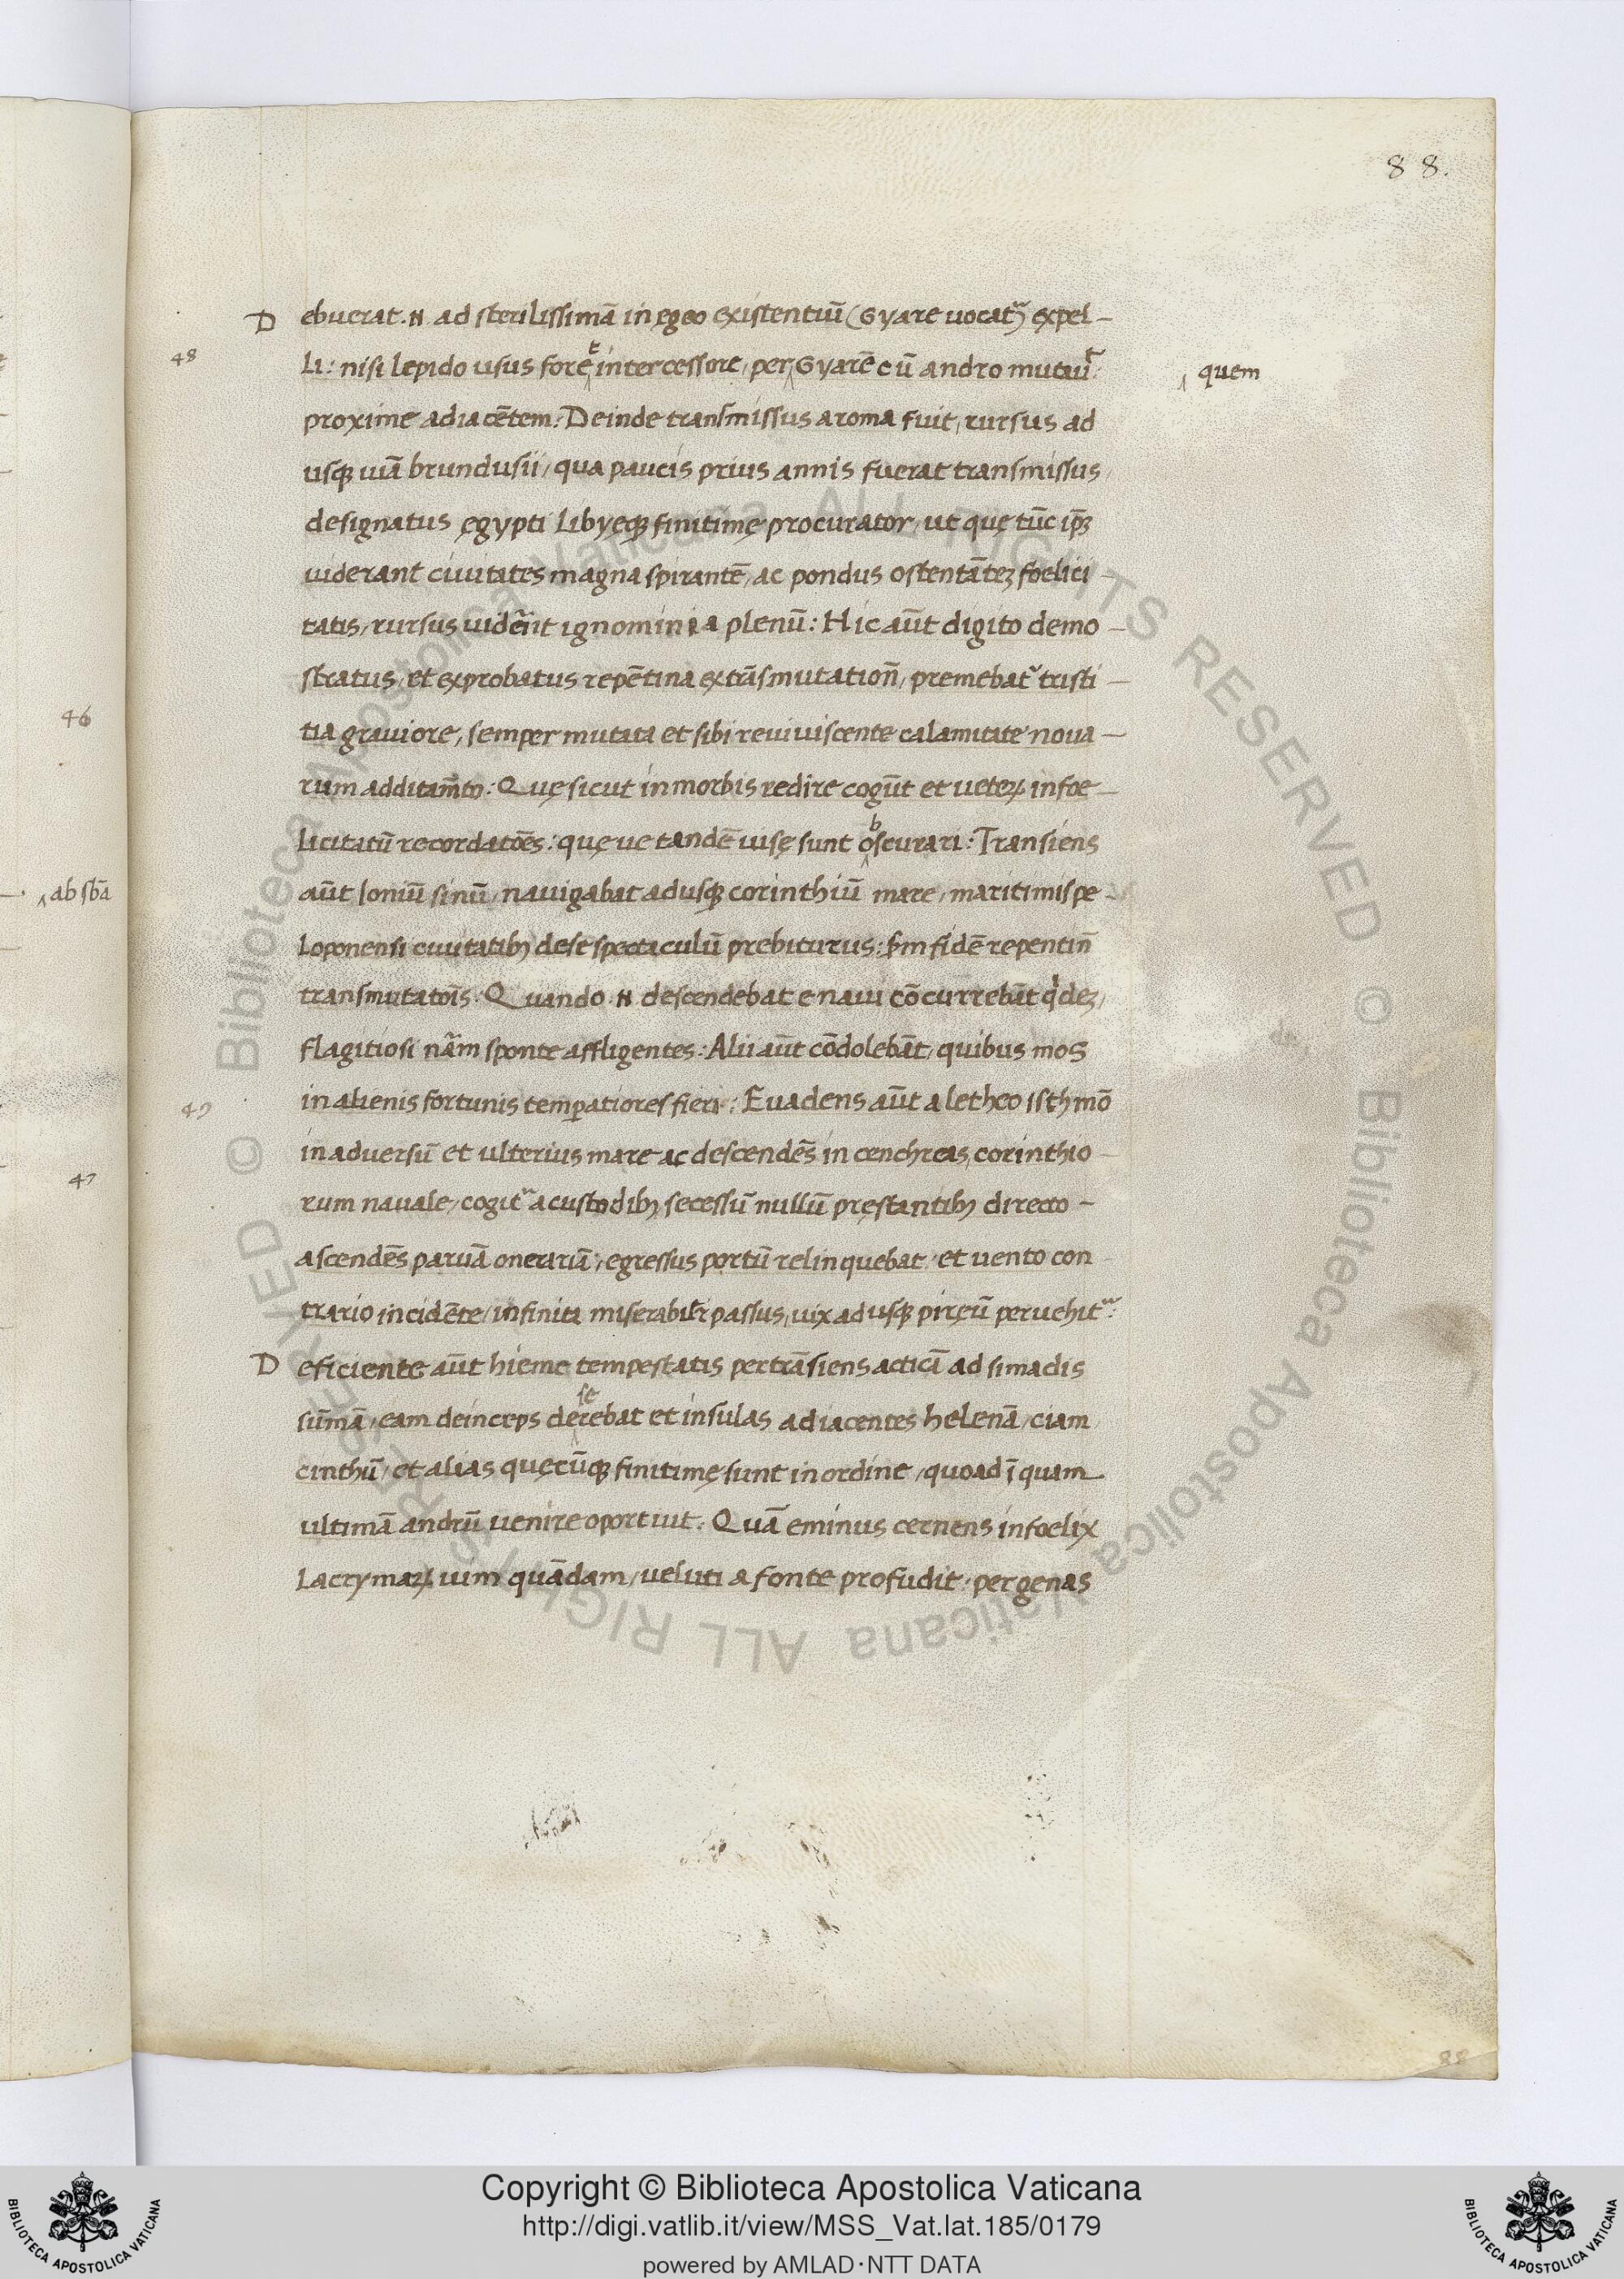 88.
Debuerat .N. ad sterilissimā in ęgeo existentiū (Gyare uocat᷑ expel–
48
li: nisi lepido usus forēt intercessore, per Gyarē cū andro mutauit:
quem
proxime adiacētem: Deinde transmissus a roma fuit, rursus ad
usqꝫ uiā brundusii, qua paucis prius annis fuerat transmissus,
designatus ęgypti Libyęqꝫ finitimę procurator, ut quę tūc ip̄ꝫ
uiderant ciuitates magna spirantē, ac pondus ostentātēꝫ foelici–
tatis, rursus uider̄ent ignominia plenū: Hic aūt digito demo–
stratus, et exprobatus repētina ex trāsmutation̄, premebat᷑ tristi–
46
tia grauiore, semper mutata et sibi reuiuiscente calamitate noua–
rum additam̄to: Quę sicut in morbis redire cogūt et ueterꝝ infoe–
licitatū recordatōes: quę ue tandē uisę sunt obscurari: Transiens
absbā
aūt Ioniū sinū, nauigabat adusqꝫ corinthiū mare, maritimis pe–
loponensi ciuitatibꝫ de se spectaculū prebiturus: ẜm fidē repentin̄
transmutatōis: Quando .N. descendebat e naui cōcurrebāt qͥdeꝫ,
flagitiosi nām sponte affligentes: Alii aūt cōdolebāt, quibus mos
49
in alienis fortunis temꝑatiores fieri: Euadens aūt a letheo isthmō
in aduersū et ulterius mare ac descendēs in cenchreas, corinthio–
47
rum nauale, cogit᷑ a custodibꝫ secessū nullū pręstantibꝫ directo –
ascendēs paruā onerariā, egressus portū relinquebat, et uento con
trario incidēte, infinita miserabilr̄ passus, uix adusqꝫ piręū peruehit᷑:
Deficiente aūt hieme tempestatis pertrāsiens acticā ad simadis
sūmā, eam deinceps deserebat et insulas adiacentes helenā, ciam
cinthū, et alias quęcūqꝫ finitimę sunt in ordine, quoad ī quam
ultimā andrū uenire oportuit: Quā eminus cernens infoelix
Lacrymarꝝ uim quādam, ueluti a fonte profudit, per genas
88
Copyright © Biblioteca Apostolica Vaticana
http://digi.vatlib.it/view/MSS_Vat.lat.185/0179
powered by AMLAD·NTT DATA